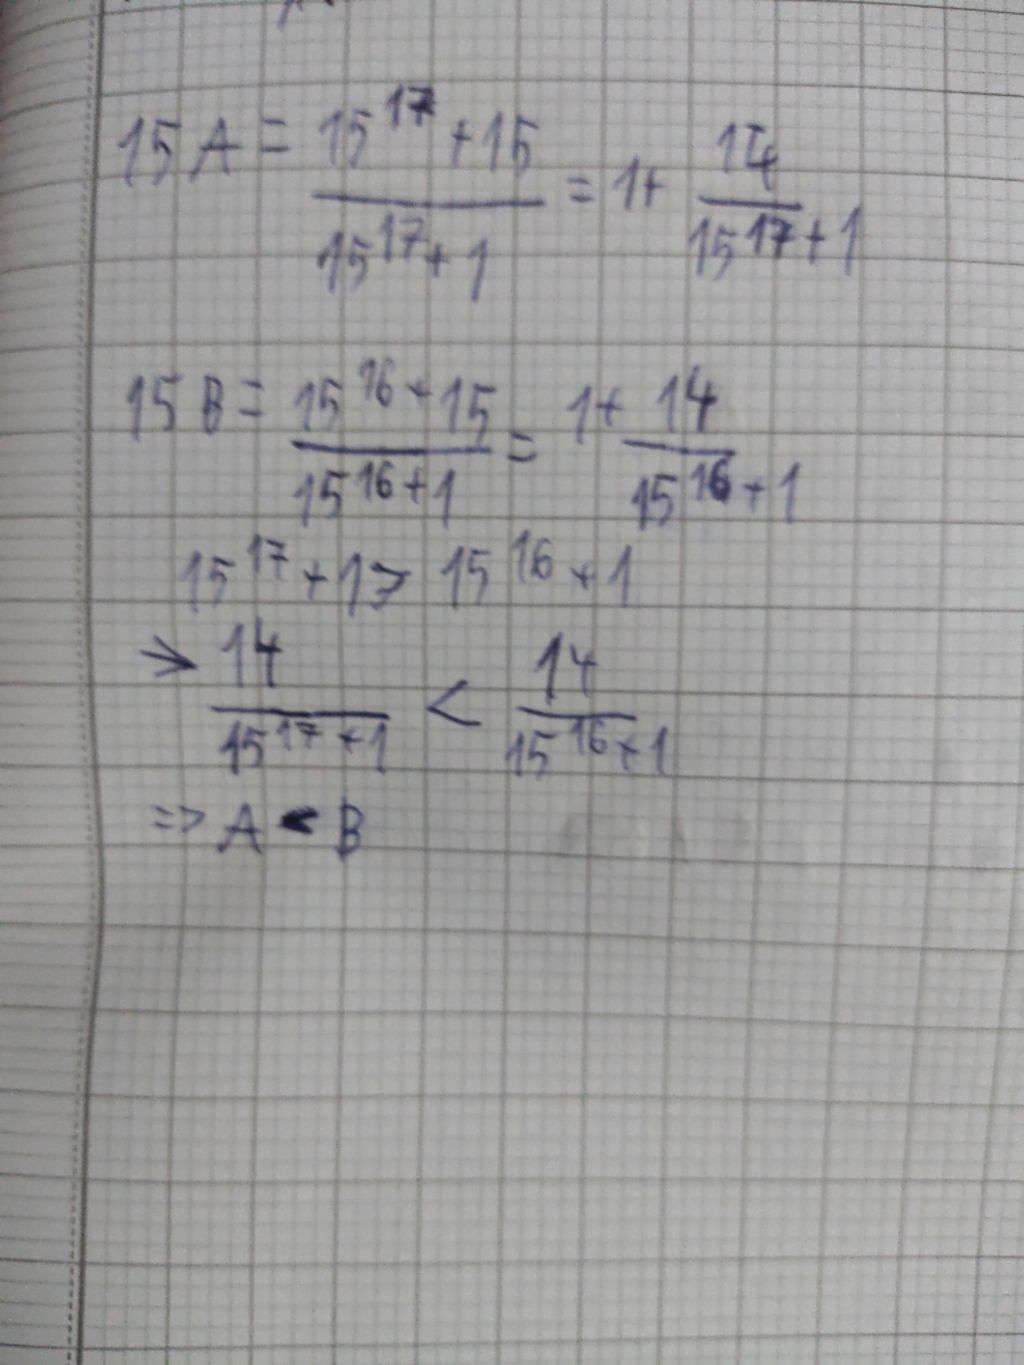 15A = (15^17 + 15)/(15^17 + 1) = 1 + 14/(15^17 + 1)
15B = (15^16 + 15)/(15^16 + 1) = 1 + 14/(15^16 + 1)
15^17 + 1 > 15^16 + 1
⇒ 14/(15^17 + 1) < 14/(15^16 + 1)
⇒ A < B